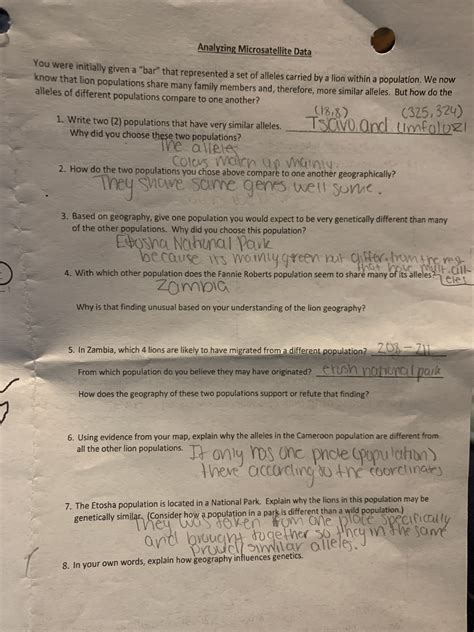 Analyzing Microsatellite Data
You were initially given a "bar" that represented a set of alleles carried by a lion within a population. We now
know that lion populations share many family members and, therefore, more similar alleles. But how do the
alleles of different populations compare to one another?
(18,8) (325,324)
1. Write two (2) populations that have very similar alleles. Tsavo and Umfolozi
Why did you choose these two populations?
The alleles
colors match up mainly.
2. How do the two populations you chose above compare to one another geographically?
They share same genes well some.
3. Based on geography, give one population you would expect to be very genetically different than many
of the other populations. Why did you choose this population?
Etosha National Park
because its mainly green but differ from the reg
that have mult. all-
4. With which other population does the Fannie Roberts population seem to share many of its alleles? eles
Zambia
Why is that finding unusual based on your understanding of the lion geography?
5. In Zambia, which 4 lions are likely to have migrated from a different population? 208-211
From which population do you believe they may have originated? etosh national park
How does the geography of these two populations support or refute that finding?
6. Using evidence from your map, explain why the alleles in the Cameroon population are different from
all the other lion populations. It only has one pride (population)
there according to the coordinates
7. The Etosha population is located in a National Park. Explain why the lions in this population may be
genetically similar. (Consider how a population in a park is different than a wild population.)
They was taken from one place specifically
and brought together so they in the same
similar alleles.
8. In your own words, explain how geography influences genetics.